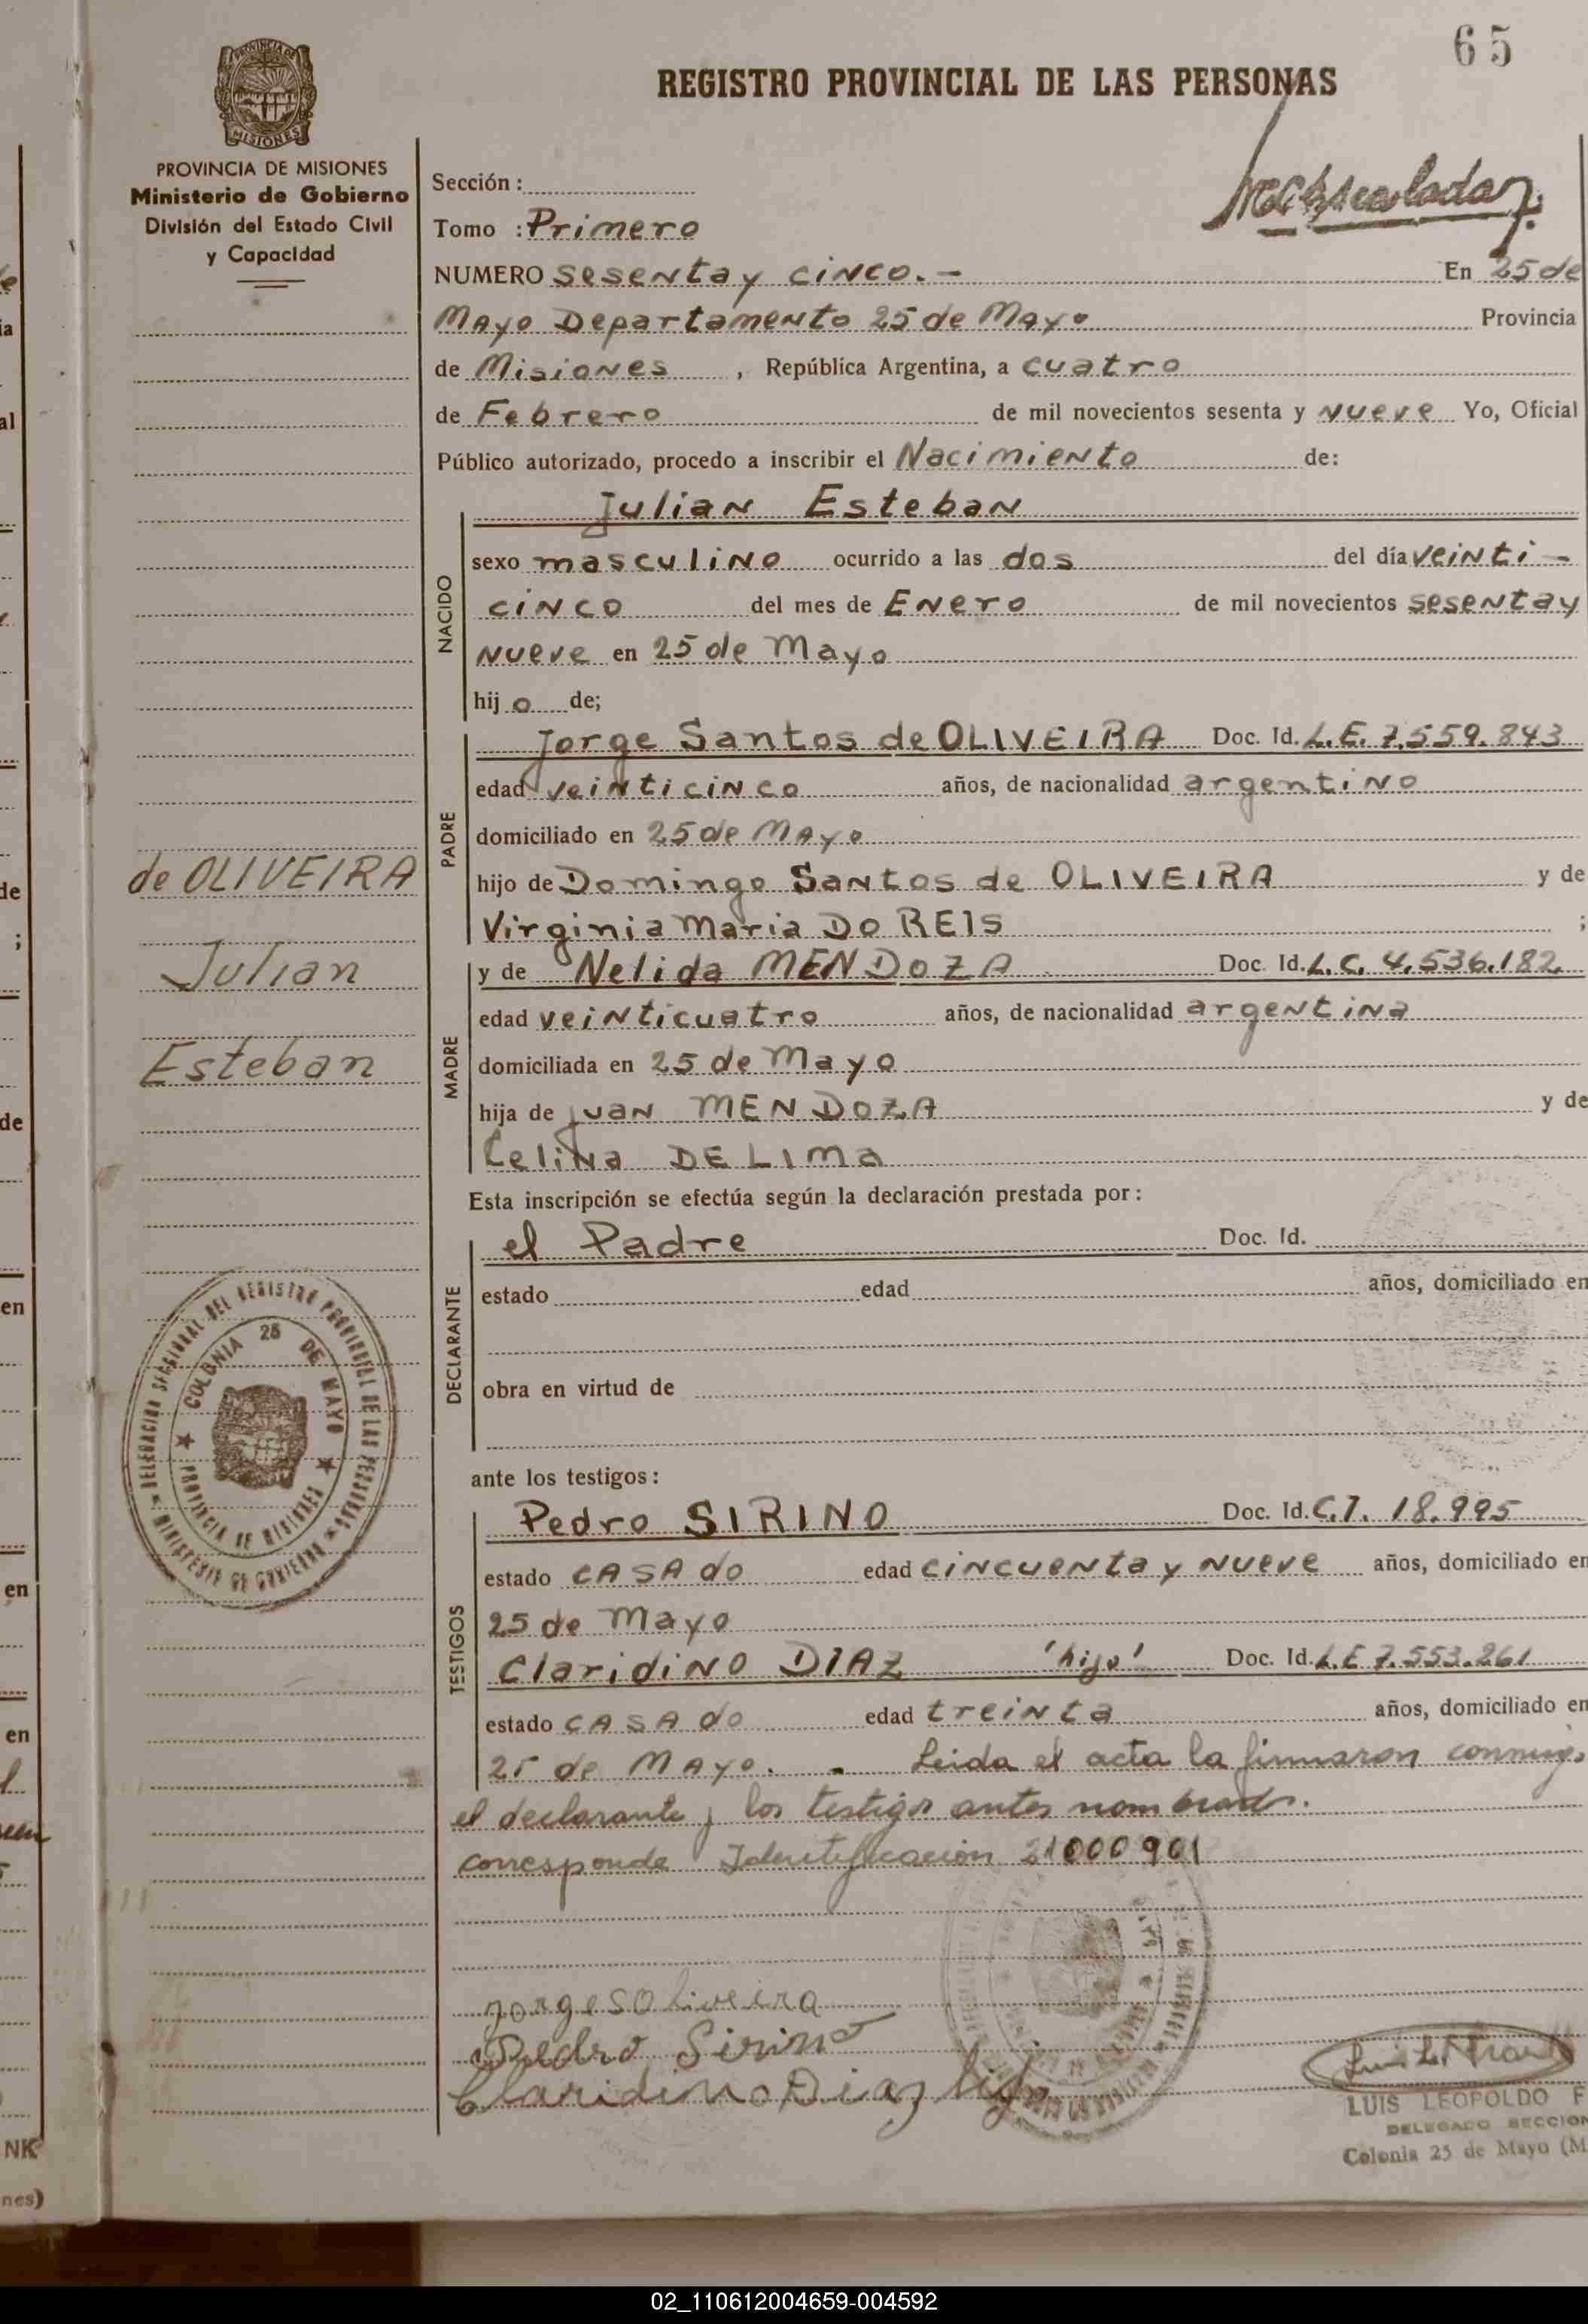 65
REGISTRO PROVINCIAL DE LAS PERSONAS
PROVINCIA DE
MISIONES
PROVINCIA DE MISIONES
Ministerio de Gobierno
División del Estado Civil
y Capacidad
Sección :
Tomo : Primero
NUMERO sesenta y cinco. - En 25 de
Mayo Departamento 25 de Mayo Provincia
de Misiones , República Argentina, a cuatro
de Febrero de mil novecientos sesenta y nueve Yo, Oficial
Público autorizado, procedo a inscribir el Nacimiento de:
NACIDO
Julian Esteban
sexo masculino ocurrido a las dos del día veinti -
cinco del mes de Enero de mil novecientos sesenta y
nueve en 25 de Mayo
hij o de;
PADRE
Jorge Santos de OLIVEIRA Doc. Id. L.E. 7.559.843
edad veinticinco años, de nacionalidad argentino
domiciliado en 25 de Mayo
hijo de Domingo Santos de OLIVEIRA y de
Virginia Maria DO REIS ;
de OLIVEIRA
Julian
Esteban
MADRE
y de Nelida MENDOZA Doc. Id. L.C. 4.536.182
edad veinticuatro años, de nacionalidad argentina
domiciliada en 25 de Mayo
hija de Juan MENDOZA y de
Celina DE LIMA
Esta inscripción se efectúa según la declaración prestada por :
DECLARANTE
el Padre Doc. Id.
estado edad años, domiciliado en
obra en virtud de
DELEGACION SECCIONAL DEL REGISTRO PROVINCIAL DE LAS PERSONAS
MINISTERIO DE GOBIERNO
COLONIA 25 DE MAYO
PROVINCIA DE MISIONES
ante los testigos :
TESTIGOS
Pedro SIRINO Doc. Id. C.I. 18.995
estado CASADO edad cincuenta y nueve años, domiciliado en
25 de Mayo
Claridino DIAZ 'hijo' Doc. Id. L.E 7.553.261
estado CASADO edad treinta años, domiciliado en
25 de Mayo. - Leida el acta la firmaron conmigo
el declarante y los testigos antes nombrados.
corresponde Identificación 21000901
Jorge S Oliveira
Pedro Sirino
Claridino Diaz hijo
LUIS LEOPOLDO F
DELEGADO SECCION
Colonia 25 de Mayo (M
NK
nes)
02_110612004659-004592